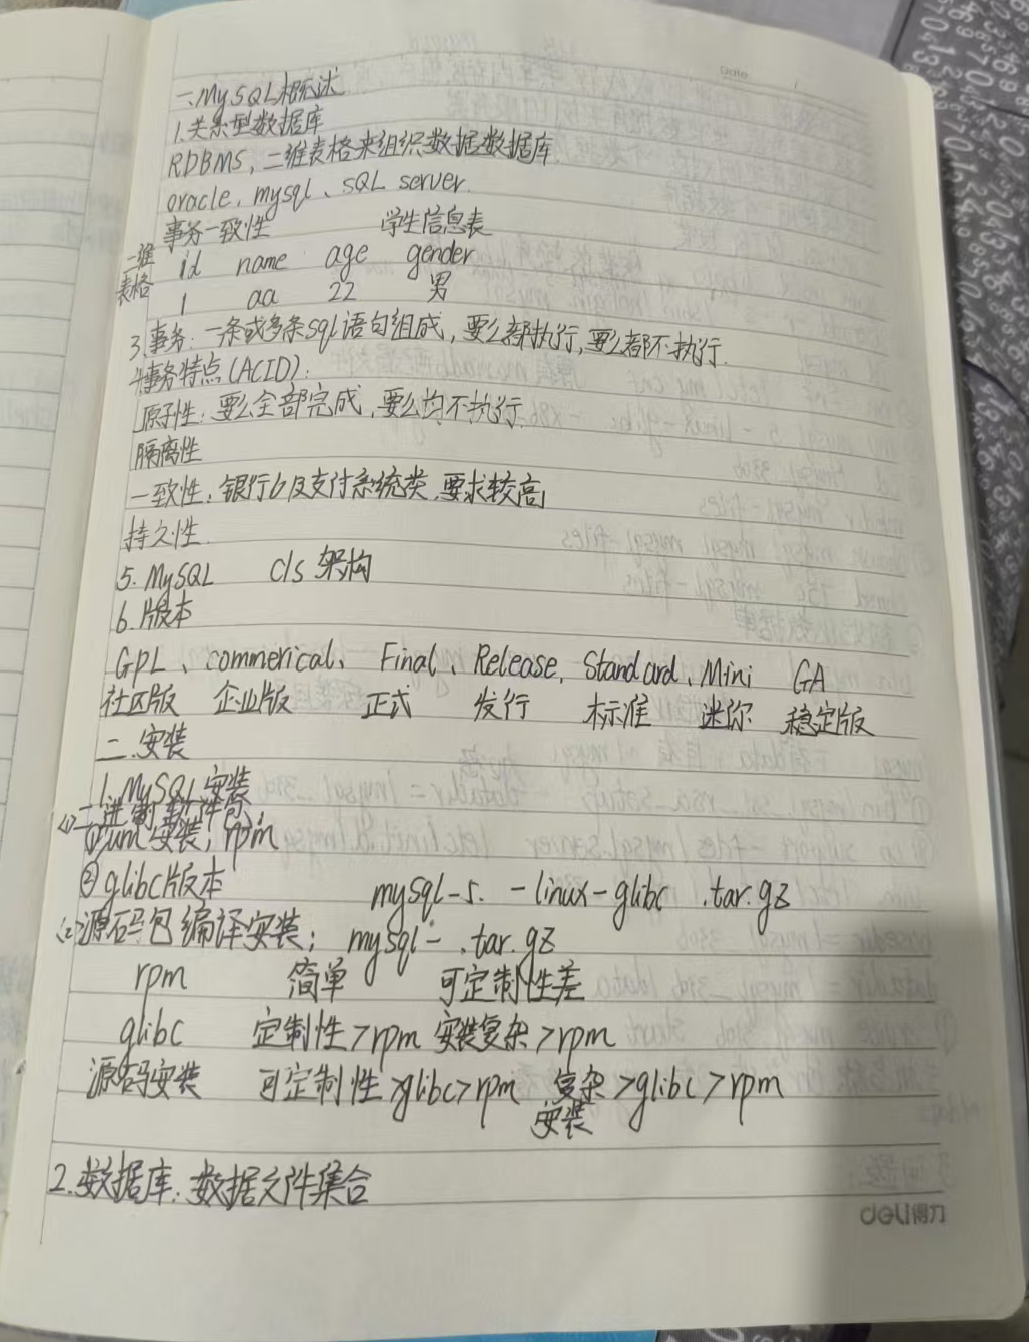 Date
一、MySQL概述
1.关系型数据库
RDBMS,二维表格来组织数据数据库
oracle、mysql、SQL server.
事务一致性 学生信息表
二维 id name age gender
表格 1 aa 22 男
3.事务:一条或多条sql语句组成,要么都执行,要么都不执行.
4.事务特点(ACID):
原子性:要么全部完成,要么均不执行.
隔离性
一致性:银行以及支付系统类,要求较高
持久性.
5.MySQL c/s架构
6.版本
GPL、commerical、Final、Release、Standard、Mini GA
社区版 企业版 正式 发行 标准 迷你 稳定版
二.安装
1.MySQL安装
<1>二进制软件包:
①yum安装,rpm
②glibc版本 mysql-5. -linux-glibc .tar.gz
<2>源码包编译安装: mysql- .tar.gz
rpm 简单 可定制性差
glibc 定制性>rpm 安装复杂>rpm
源码安装 可定制性>glibc>rpm 复杂>glibc>rpm
安装
2.数据库:数据文件集合
deli得力